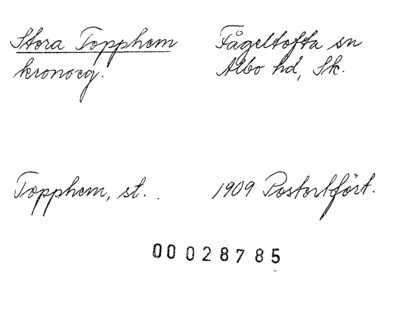 Stora Topphem
kronoeg.
Fågeltofta sn
Albo hd, Sk.
Topphem, st. .
1909 Postortfört.
00028785